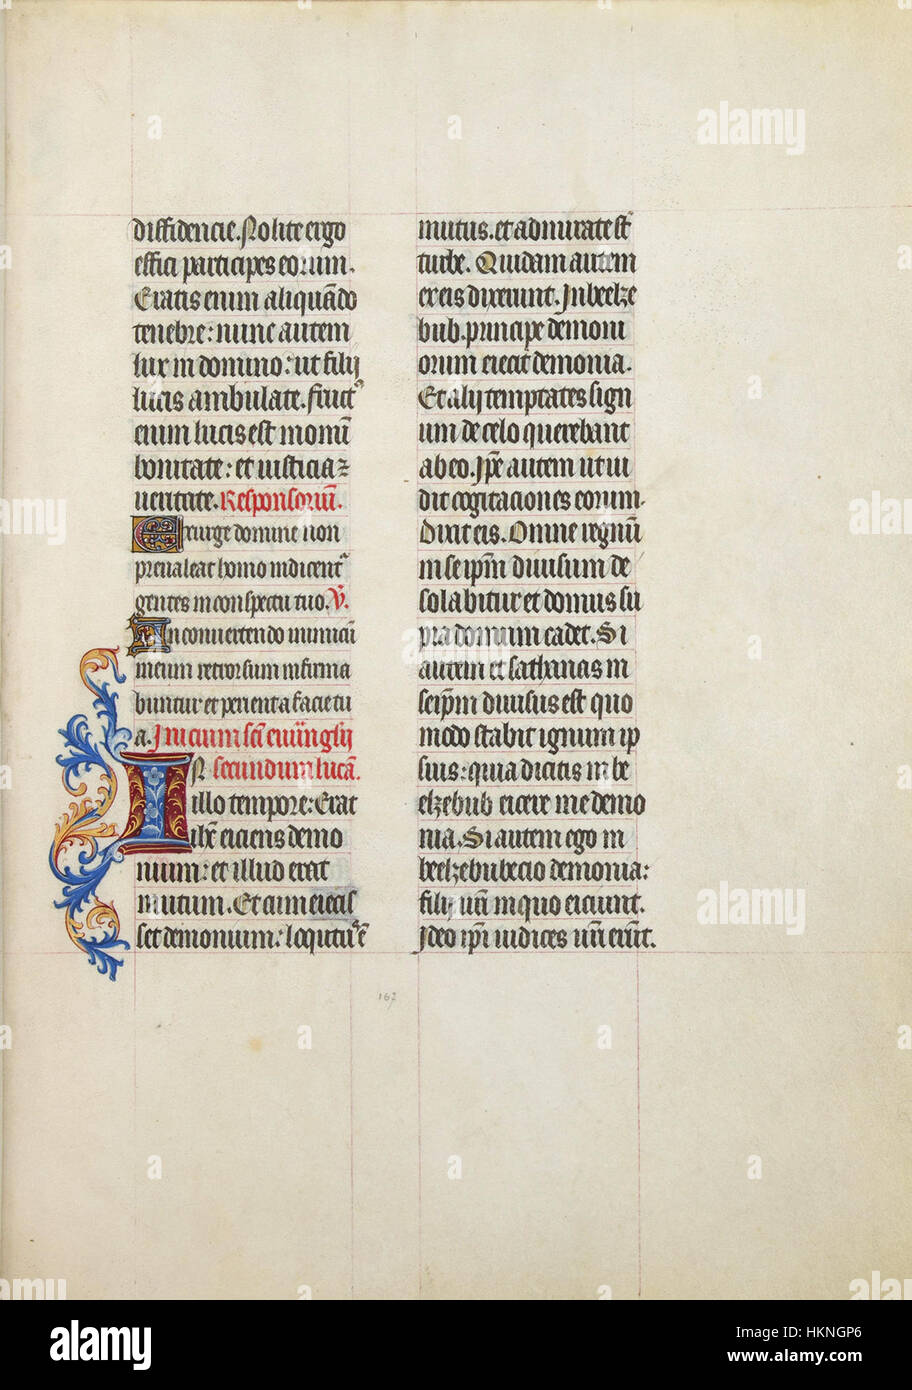 diffidencie. Nolite ergo
effici participes eorum.
Eratis enim aliquando
tenebre: nunc autem
lux in domino: ut filij
lucis ambulate. fructꝰ
enim lucis est in omni
bonitate: et iusticia ⁊
ueritate. Responsoriū.
Exurge domine non
preualeat homo iudicent᷑
gentes in conspectu tuo. V̄.
In conuertendo inimicū
meum retrorsum infirma
buntur et perient a facie tu
a. Inicium sc̄i euūngelij
IN secundum lucā.
illo tempore: Erat
ihc̄ eiciens demo
nium: et illud erat
mutum. Et cum eiecis
set demonium: loqutus ē
mutus. et admirate st̄
turbe. Quidam autem
ex eis dixerunt. In beelze
bub. principe demoni
orum eiecit demonia.
Et alij temptates sign
um de celo querebant
ab eo. Ip̄e autem ut ui
dit cogitaciones eorum.
Dixit eis. Omne regnū
in se ip̄m diuisum de
solabitur et domus su
pra domum cadet. Si
autem et sathanas in
seip̄m diuisus est quo
modo stabit ignum ip
sius: quia dicitis in be
elzebub eicere me demo
nia. Si autem ego in
beelzebub eicio demonia:
filij ur̄i in quo eiciunt.
Ideo ip̄i iudices ur̄i erūt.
167
alamy
alamy
Image ID: HKNGP6
www.alamy.com